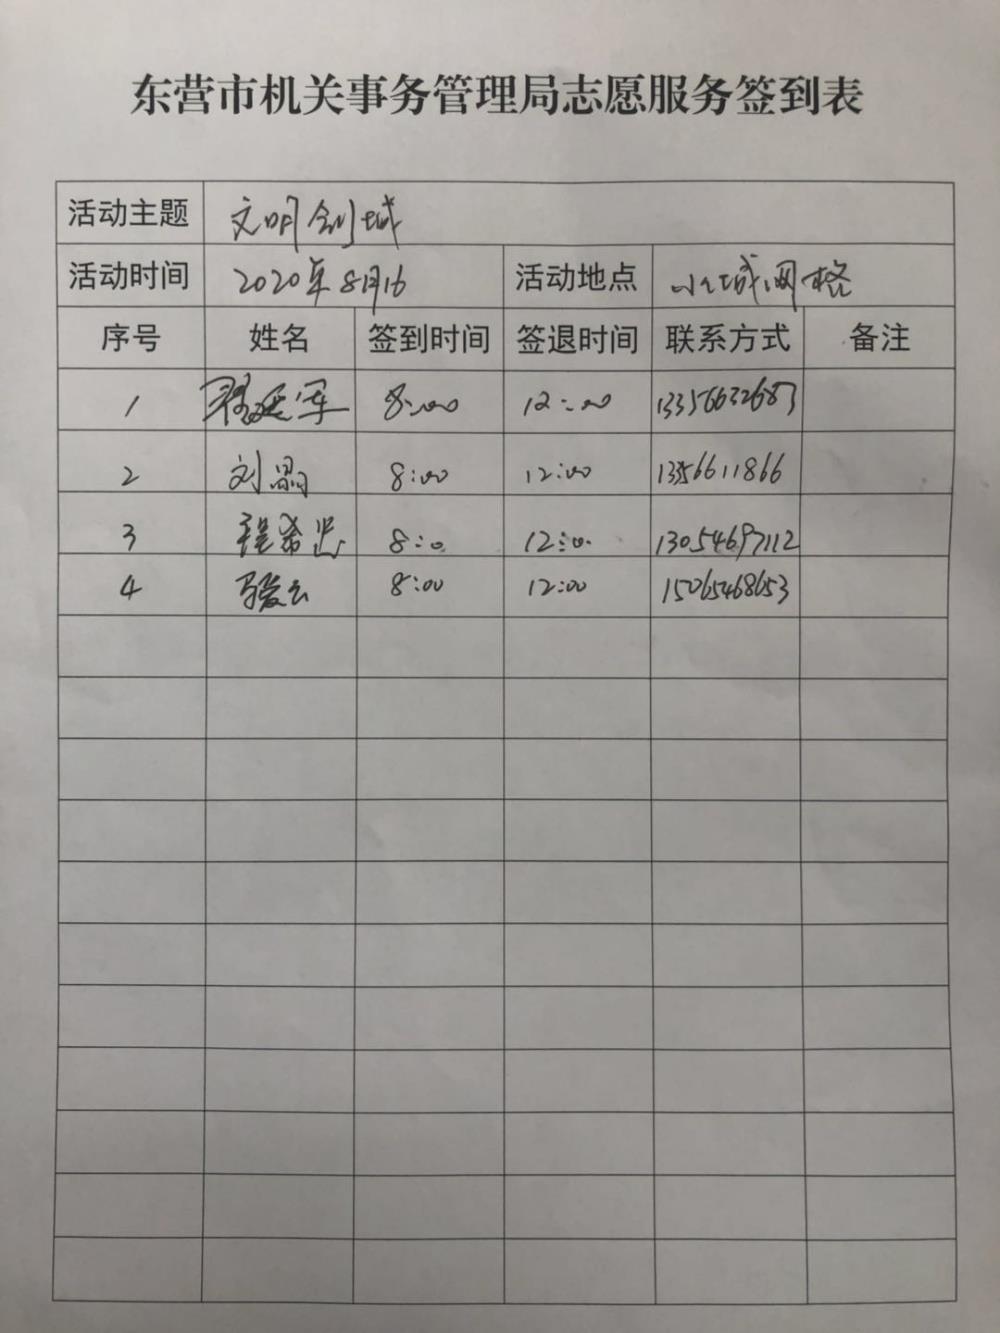 东营市机关事务管理局志愿服务签到表
活动主题 文明创城
活动时间 2020年8月16 活动地点 城网格
序号 姓名 签到时间 签退时间 联系方式 备注
1 8:00 12:00 13356632683
2 刘晶 8:00 12:00 1356611866
3 程希忠 8:0 12:0 13054697112
4 8:00 12:00 15065468653